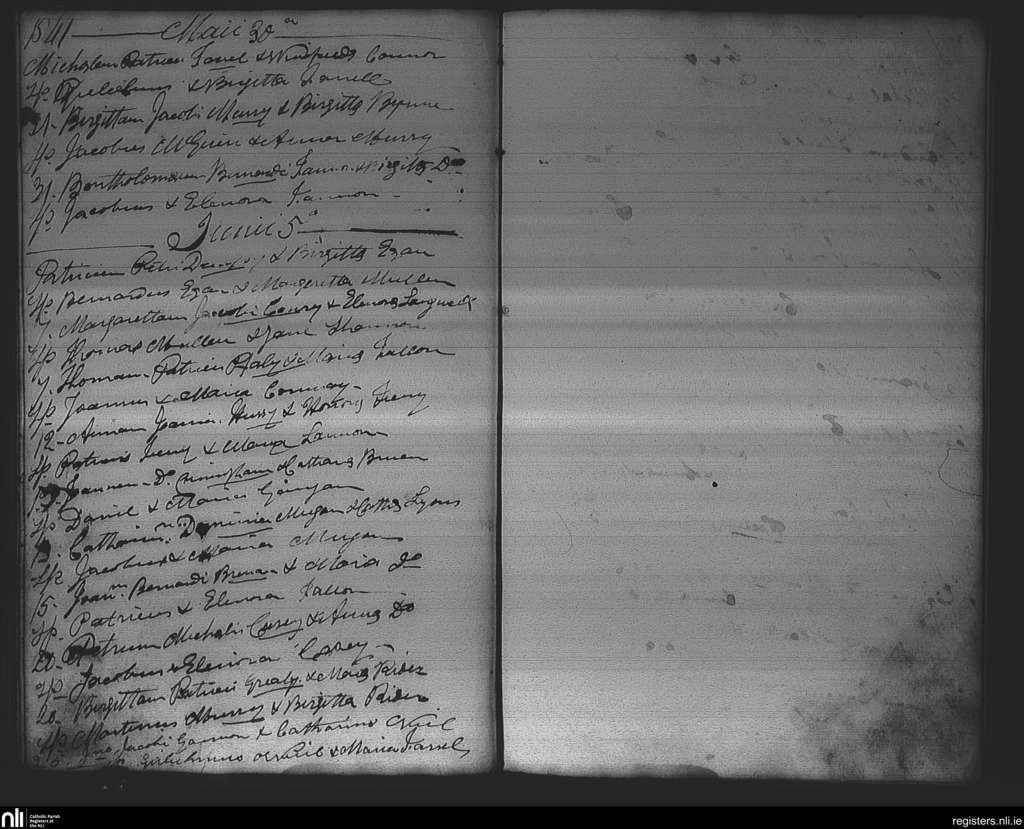 1841 Maii 30a
Micholam Patricii Farrel & Winifreda Connor
Sp. Gulielmus & Brigitta Farrell
31- Birgittam Jacobi Murry & Birgitta Byrne
Sp. Jacobus McGuire & Anna Murry
31. Bartholomeum Bernardi Fannon & Birgitta Do
Sp. Jacobus & Elenora Fannon
Junii 5a
Patricium Petri Dempsy & Birgitta Egan
Sp. Bernardus Egan & Margeretta Mullen
7 Margarettam Jacobi Conry & Elenora
Sp Thomas Mullen & Jane Shannon
9. Thomam Patricii Healy & Maria Fallon
Sp Joannes & Maria Conway
12- Annam Joannis Hussy & Honora Feeny
Sp Patricius Feeny & Maria Lannon
Joannem Do Cuningham & Catharina Bruen
Sp Daniel & Maria
Catharin. Dominici Mugan & Cath Lyons
Sp Jacobus & Maria Mugan
15. Joannm Bernardi Brenan & Maria Do
Sp. Patricius & Elenora Fallon
20- Petrum Michalis Casey & Anna Do
Sp Jacobus & Elenora Casey
20- Birgittam Patricii Grealy & Maria Rider
Sp Martinus Murry & Birgitta Rider
Jacobi Gannon & Catharina
Gulielmus & Maria Farrel
nli
Catholic Parish
Registers at
the NLI
registers.nli.ie